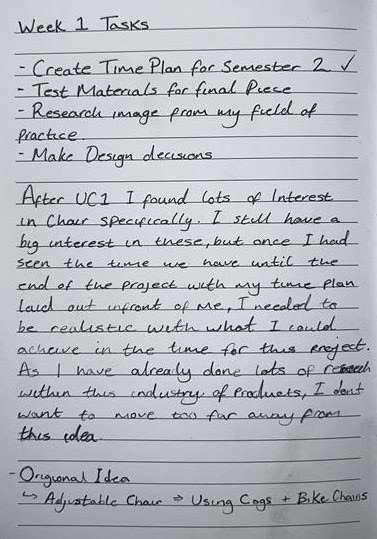 Week 1 Tasks
- Create Time Plan for Semester 2 ✓
- Test Materials for final Piece
- Research image from my field of
practice
- Make Design decisions
After UC1 I found lots of Interest
in Chair specifically. I still have a
big interest in these, but once I had
seen the time we have until the
end of the Project with my time plan
laid out infront of me, I needed to
be realistic with what I could
acheive in the time for this project.
As I have already done lots of research
within this industry of Products, I dont
want to move too far away from
this idea.
- Origional Idea
↳ Adjustable Chair ⇒ Using Cogs + Bike Chains